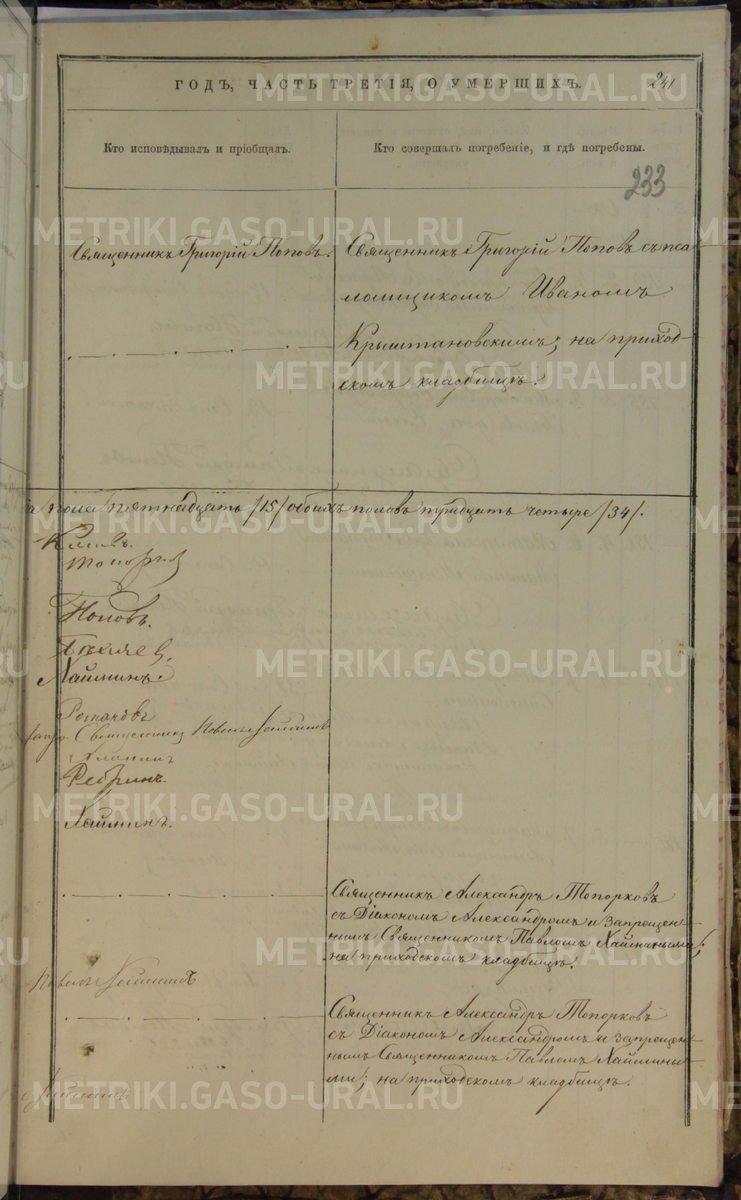 ГОДЪ, ЧАСТЬ ТРЕТІЯ, О УМЕРШИХЪ. 241
Кто исповѣдывалъ и пріобщалъ.
Кто совершалъ погребеніе, и гдѣ погребены.
233
Священникъ Григорій Поповъ.
Священникъ Григорій Поповъ съ пса-
ломщикомъ Иваномъ
Крыштановскимъ; на приход-
скомъ кладбищѣ.
пола пятнадцать /15/ обоихъ половъ тридцать четыре /34/.
Поповъ.
Хайминъ.
Священникъ
Ребринъ.
Хайминъ.
Священникъ Александръ Топорковъ
съ Діакономъ Александромъ и запрещен-
нымъ Священникомъ Павломъ Хаймиными;
на приходскомъ кладбищѣ.
Священникъ Александръ Топорковъ
съ Діакономъ Александромъ и запрещен-
нымъ Священникомъ Павломъ Хаймины-
ми; на приходскомъ кладбищѣ.
METRIKI.GASO-URAL.RU